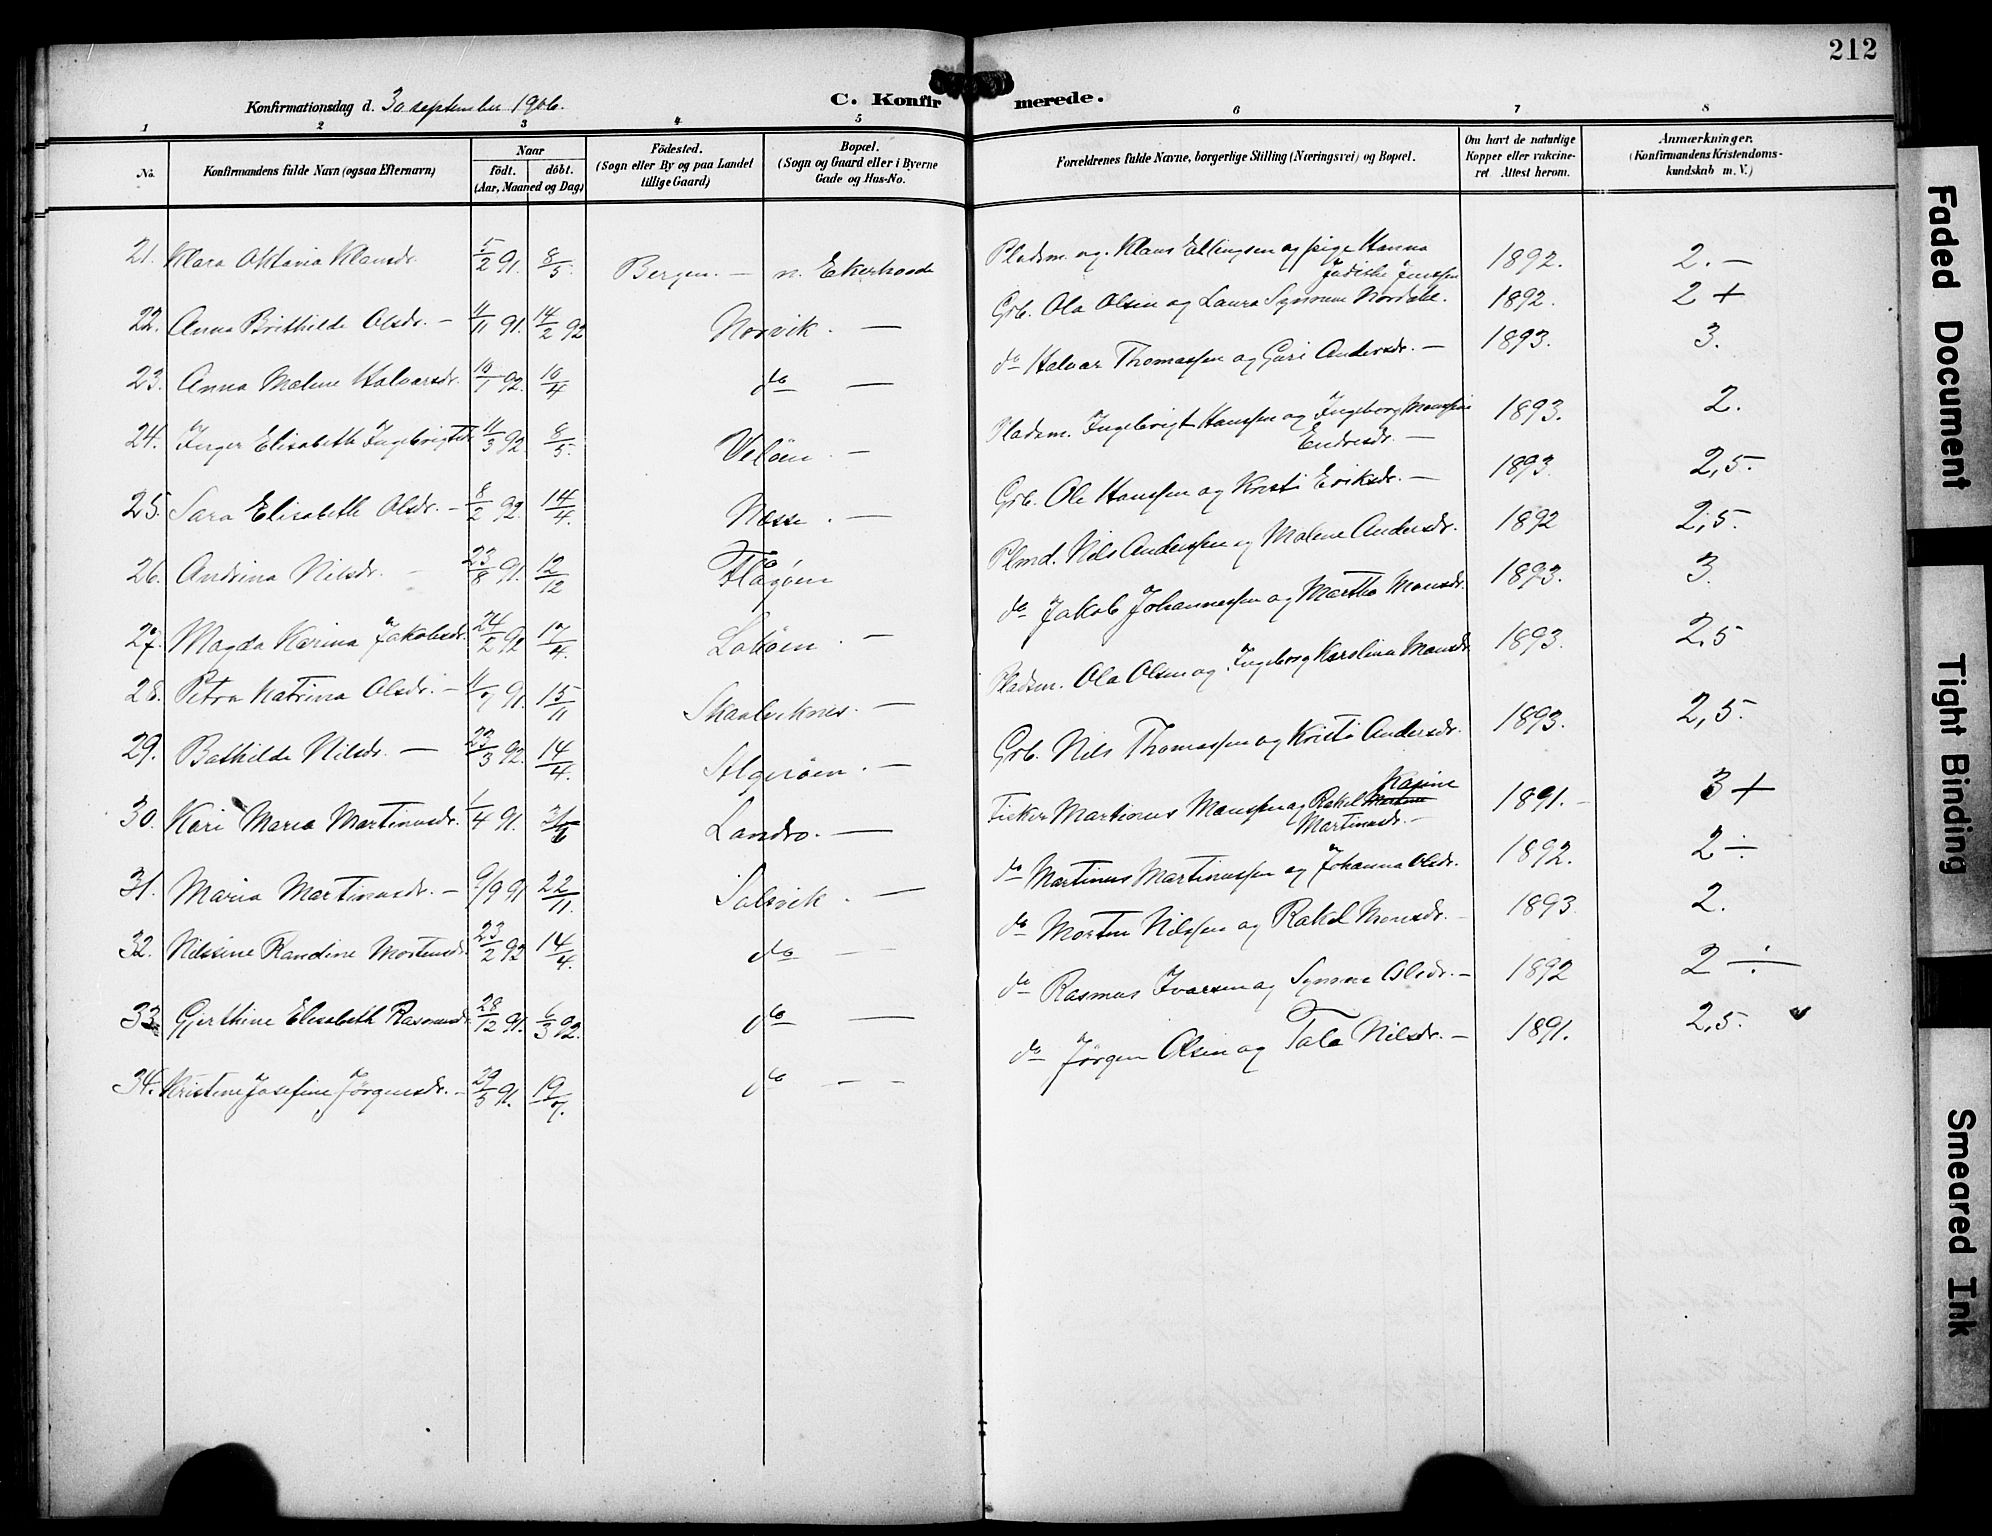 212
Konfirmationsdag d. 30 september 1906.
C. Konfirmerede.
1 2 3 4 5 6 7 8
No.
Konfirmandens fulde Navn (ogsaa Efternavn)
Naar
födt. döbt.
(Aar, Maaned og Dag)
Födested.
(Sogn eller By og paa Landet
tillige Gaard)
Bopæl.
(Sogn og Gaard eller i Byerne
Gade og Hus-No.
Forældrenes fulde Navne, borgerlige Stilling (Næringsvei) og Bopæl.
Om havt de naturlige
Kopper eller vakcine-
ret Attest herom.
Anmærkninger.
(Konfirmandens Kristendoms-
kundskab m. V.)
21. Klara Oktavia Klausdr. 5/2 91. 8/5. Bergen. — n. Ekerhovde Pladsm. og. Klaus Ellingsen og pige Hanna 1892. 2. —
Jensen
22. Anna Brithilde Olsdr. — 11/11 91. 14/2 92 Norvik. — Grb. Ola Olsen og Laura Synneve Nordal. 1892. 2 +
23. Anna Malene Halvarsdr. 10/1 92. 10/4 do — do Halvar Thomassen og Guri Andersdr. — 1893. 3.
24. Inger Elisabeth Ingebrigtsd. 11/3 92. 8/5. Veløen. — Pladsm. Ingebrigt Hanssen og Ingeborg Monsine 1893. 2.
Endresdr. —
25. Sara Elisabeth Olsdr. — 8/2 92. 14/4. Nesse. — Grb. Ole Hanssen og Kristi Eriksdr. — 1893. 2,5.
26. Andrina Nilsdr. — 23/8 91. 12/12 Flagøen Plmd. Nils Anderssen og Malene Andersdr. 1892 2,5.
27. Magda Karina Jakobsdr. 24/2 92 17/4. Lokøen. — do Jakob Johannessen og Martha Monsdr. 1893. 3.
28. Petra Katrina Olsdr. — 91. 15/11 Skaalviknes. — Pladsm. Ola Olsen og Ingeborg Karolina Monsdr 1893. 2,5
29. Bathilde Nilsdr. — 23/3 92. 14/4. Algerøen. — Grb. Nils Thomassen og Kristi Andersdr. 1893. 2,5.
30. Kari Maria Martinusdr. 1/4 91. Landro. — Fisker Martinus Monssen og Rakel Kasine 1891. — 3 +
Martinusdr. —
31. Maria Martinusdr. — 9/9 91 22/11. Solsvik. — do Martinus Martinussen og Johanna Olsdr. 1892. 2 ÷
32. Nilsine Randine Mortensdr. 23/2 92 14/4. do — do Morten Nilssen og Rakel Monsdr. — 1893. 2.
33. Gjerthine Elisabeth Rasmusdr. 28/12 91. 6/3 92. do — do Rasmus Ivarsen og Synneve Olsdr. — 1892 2 ÷
34. Kristine Josefine Jørgensdr. — 29/5 91. 19/7. do — — do Jørgen Olsen og Tala Nilsdr. — 1891. 2,5.
Faded Document
Tight Binding
Smeared Ink